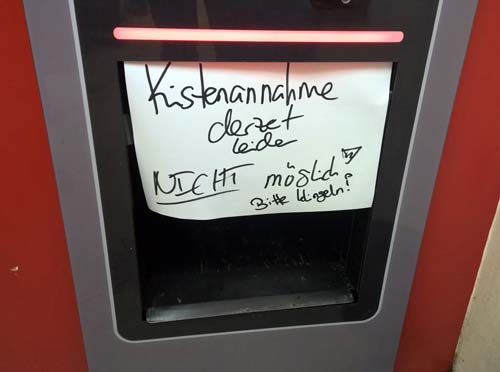 Kistenannahme
derzet
leider
NICHT möglich
Bitte klingeln!